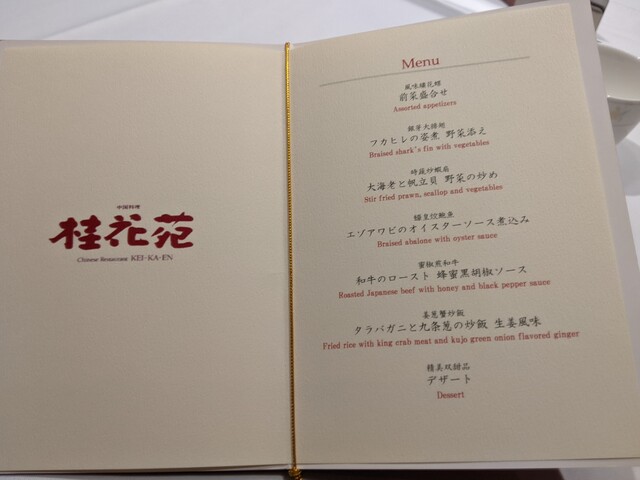 中国料理
桂花苑
Chinese Restaurant KEI-KA-EN
Menu
風味蝶花碟
前菜盛合せ
Assorted appetizers
銀芽大排翅
フカヒレの姿煮 野菜添え
Braised shark's fin with vegetables
時蔬炒蝦扇
大海老と帆立貝 野菜の炒め
Stir fried prawn, scallop and vegetables
極皇炆鮑魚
エゾアワビのオイスターソース煮込み
Braised abalone with oyster sauce
蜜椒煎和牛
和牛のロースト 蜂蜜黒胡椒ソース
Roasted Japanese beef with honey and black pepper sauce
姜葱蟹炒飯
タラバガニと九条葱の炒飯 生姜風味
Fried rice with king crab meat and kujo green onion flavored ginger
精美双甜品
デザート
Dessert